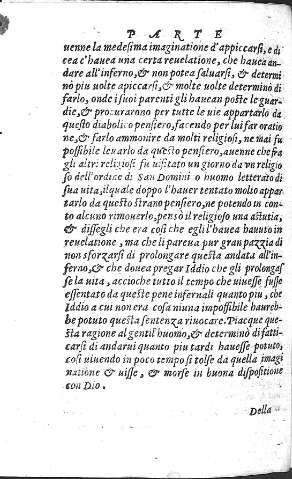 PARTE
uenne la medesima imaginatione d'appiccarsi, e di
cea c'hauea una certa reuelatione, che hauea an-
dare all'inferno, & non potea saluarsi, & determi
nò piu uolte apiccarsi, & molte uolte determinò di
farlo, onde i suoi parenti gli haueano poste le guar-
die, & procurarono per tutte le uie appartarlo da
questo diabolico pensiero, facendo per lui far oratio
ne, & farlo ammonire da molti religiosi, ne mai fu
possibile leuarlo da questo pensiero, auenne che fra
gli altri religiosi fu uisitato un giorno da un religio
so dell'ordine di San Domini o huomo letterato di
sua uita, ilquale doppo l'hauer tentato molto appar
tarlo da questo strano pensiero, ne potendo in con-
to alcuno rimouerlo, pensò il religioso una astutia,
& dissegli che era così che egli l'hauea hauuto in
reuelatione, ma che li pareua pur gran pazzia di
non sforzarsi di prolongare questa andata all'in-
ferno, & che douea pregar Iddio che gli prolongas
se la uita, accioche tutto il tempo che uiuesse fusse
essentato da queste pene infernali quanto piu, che
Iddio a cui non era cosa niuna impossibile haureb-
be potuto questa sentenza riuocare. Piacque que-
sta ragione al gentil'huomo, & determinò di fatti-
carsi di andarui quanto piu tardi hauesse potuto,
così uiuendo in poco tempo si tolse da quella imagi
natione & uisse, & morse in buona dispositione
con Dio.
Della